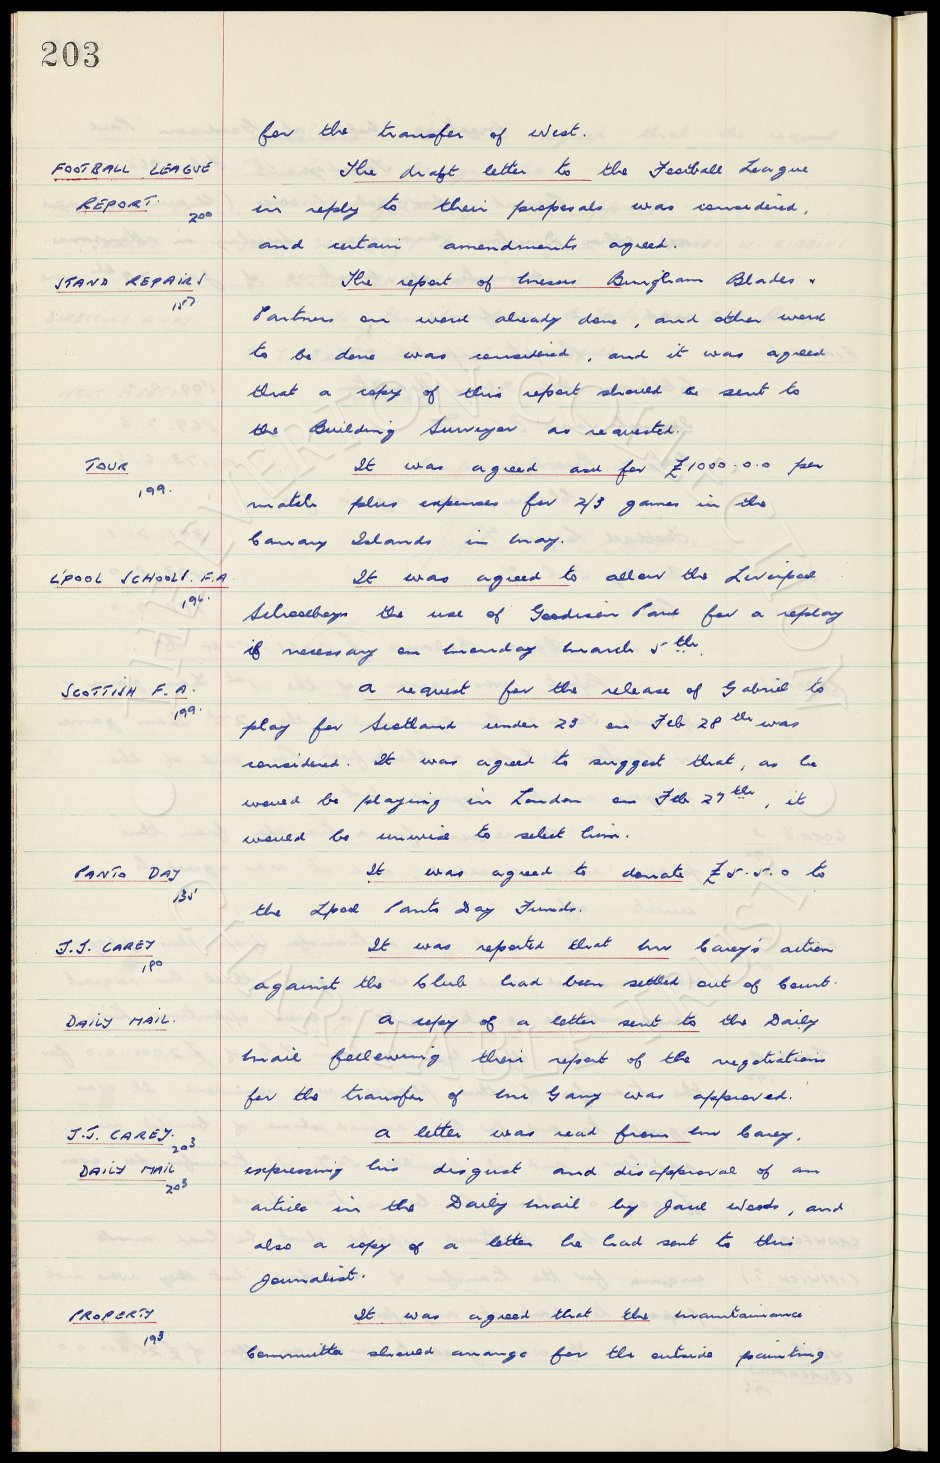 203
for the transfer of West.
FOOTBALL LEAGUE The draft letter to the Football League
REPORT. 200 in reply to their proposals was considered,
and certain amendments agreed.
STAND REPAIRS The report of Messrs Bingham Blades &
187 Partners on work already done, and other work
to be done was considered, and it was agreed
that a copy of this report should be sent to
the Building Surveyor as requested.
TOUR It was agreed ask for £1000.0.0 per
199. match plus expenses for 2/3 games in the
Canary Islands in May.
L'POOL SCHOOLS. F.A. It was agreed to allow the Liverpool
196. Schoolboys the use of Goodison Park for a replay
if necessary on Monday March 5th.
SCOTTISH F.A. A request for the release of Gabriel to
199. play for Scotland under 23 on Feb 28th was
considered. It was agreed to suggest that, as he
would be playing in London on Feb 27th, it
would be unwise to select him.
PANTO DAY It was agreed to donate £5.5.0 to
135 the Lpool Panto Day Funds.
J.J. CAREY It was reported that Mr Carey's action
180 against the Club had been settled out of Court.
DAILY MAIL. A copy of a letter sent to the Daily
Mail following their report of the negotiations
for the transfer of Mr Gany was approved.
J.J. CAREY. 203 A letter was read from Mr Carey,
DAILY MAIL 203 expressing his disgust and disapproval of an
article in the Daily Mail by Jack Wood, and
also a copy of a letter he had sent to this
journalist.
PROPERTY It was agreed that the maintainance
193 Committee should arrange for the outside painting